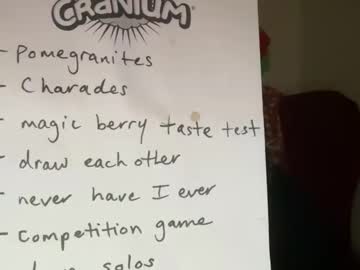 CRANIUM
- Pomegranites
- Charades
- magic berry taste test
- draw each other
- never have I ever
- Competition game
solos